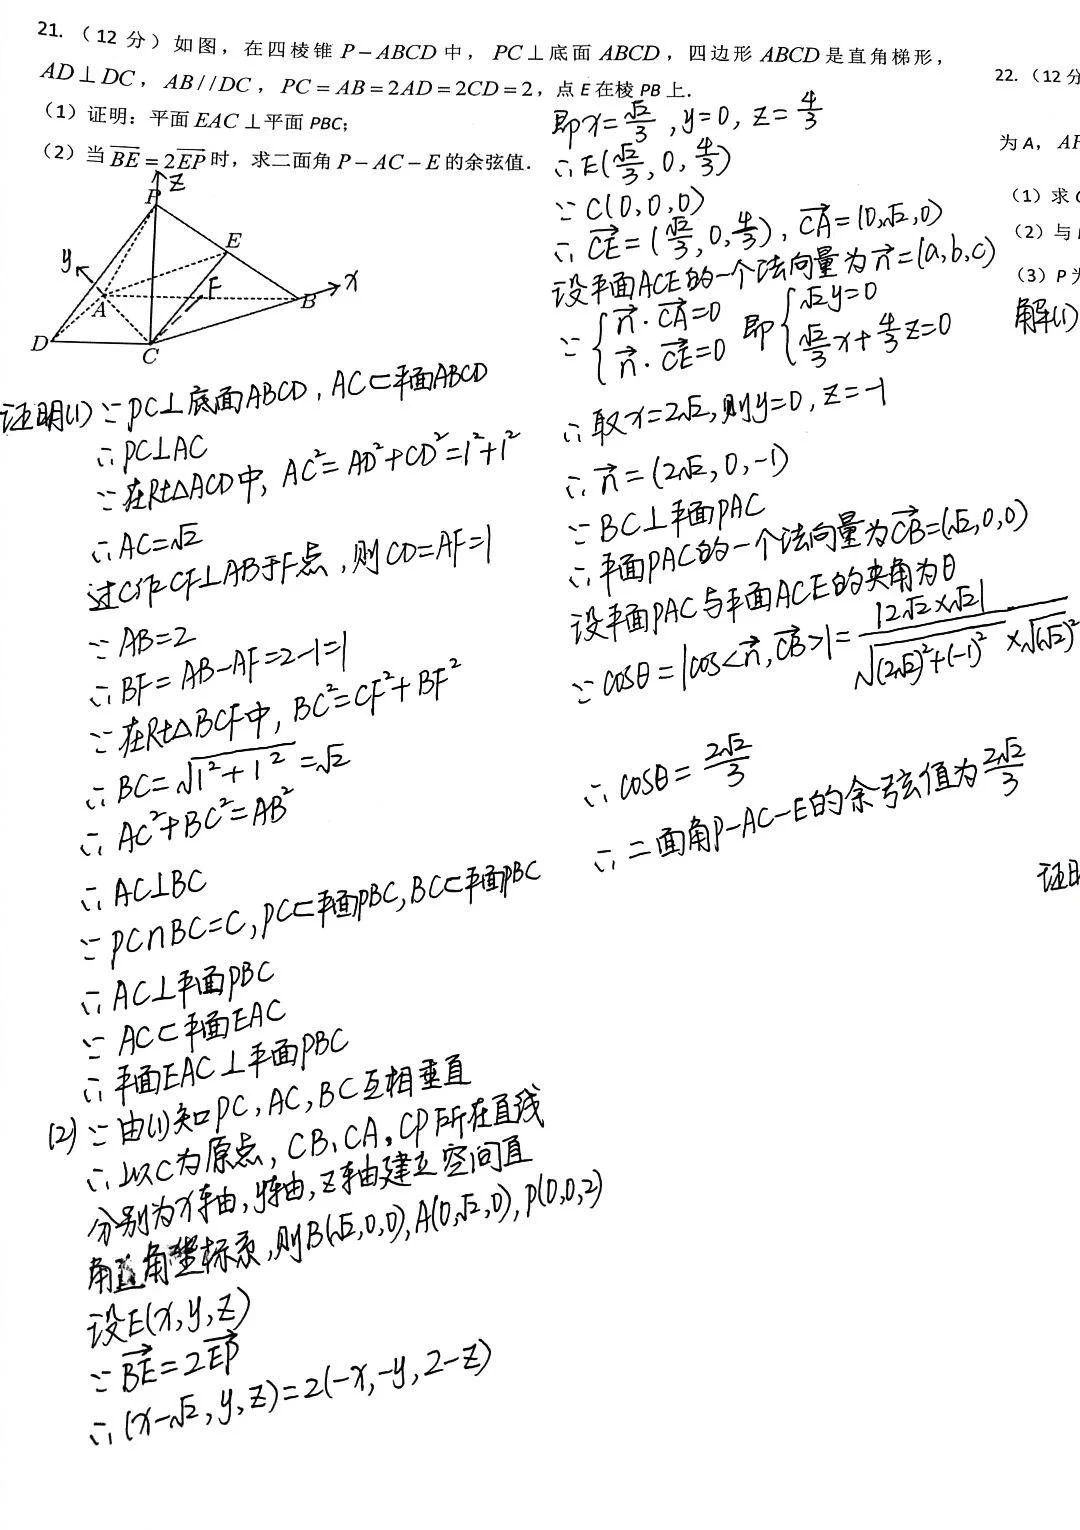 21.（12 分）如图，在四棱锥 P－ABCD 中，PC⊥底面 ABCD，四边形 ABCD 是直角梯形，
AD⊥DC，AB//DC，PC＝AB＝2AD＝2CD＝2，点 E 在棱 PB 上．
（1）证明：平面 EAC⊥平面 PBC；
（2）当 \overline{BE}＝2\overline{EP} 时，求二面角 P－AC－E 的余弦值．
P
z
y
E
x
F
A
B
D
C
证明(1) ∵ PC⊥底面ABCD, AC⊂平面ABCD
∴ PC⊥AC
∵ 在Rt△ACD中, AC²=AD²+CD²=1²+1²
∴ AC=√2
过C作CF⊥AB于F点, 则CD=AF=1
∵ AB=2
∴ BF=AB-AF=2-1=1
∵ 在Rt△BCF中, BC²=CF²+BF²
∴ BC=√(1²+1²)=√2
∴ AC²+BC²=AB²
∴ AC⊥BC
∵ PC∩BC=C, PC⊂平面PBC, BC⊂平面PBC
∴ AC⊥平面PBC
∵ AC⊂平面EAC
∴ 平面EAC⊥平面PBC
(2) ∵ 由(1)知PC, AC, BC互相垂直
∴ 以C为原点, CB、CA、CP所在直线
分别为x轴, y轴, z轴建立空间直
角直角坐标系, 则B(√2,0,0), A(0,√2,0), P(0,0,2)
设E(x,y,z)
∵ \overrightarrow{BE}=2\overrightarrow{EP}
∴ (x-√2, y, z)=2(-x,-y,2-z)
即x=√2/3, y=0, z=4/3
∴ E(√2/3, 0, 4/3)
∵ C(0,0,0)
∴ \overrightarrow{CE}=(√2/3, 0, 4/3), \overrightarrow{CA}=(0,√2,0)
设平面ACE的一个法向量为\overrightarrow{n}=(a,b,c)
∵ { \overrightarrow{n}·\overrightarrow{CA}=0 即 { √2y=0
\overrightarrow{n}·\overrightarrow{CE}=0 √2/3x+4/3z=0
∴ 取x=2√2, 则y=0, z=-1
∴ \overrightarrow{n}=(2√2,0,-1)
∵ BC⊥平面PAC
∴ 平面PAC的一个法向量为\overrightarrow{CB}=(√2,0,0)
设平面PAC与平面ACE的夹角为θ
∵ cosθ=|cos<\overrightarrow{n},\overrightarrow{CB}>|=|2√2×√2|/(√((2√2)²+(-1)²)×√(√2)²
∴ cosθ=2√2/3
∴ 二面角P-AC-E的余弦值为2√2/3
22.（12 分
为 A，AF
（1）求
（2）与
（3）P 为
解(1)
证明